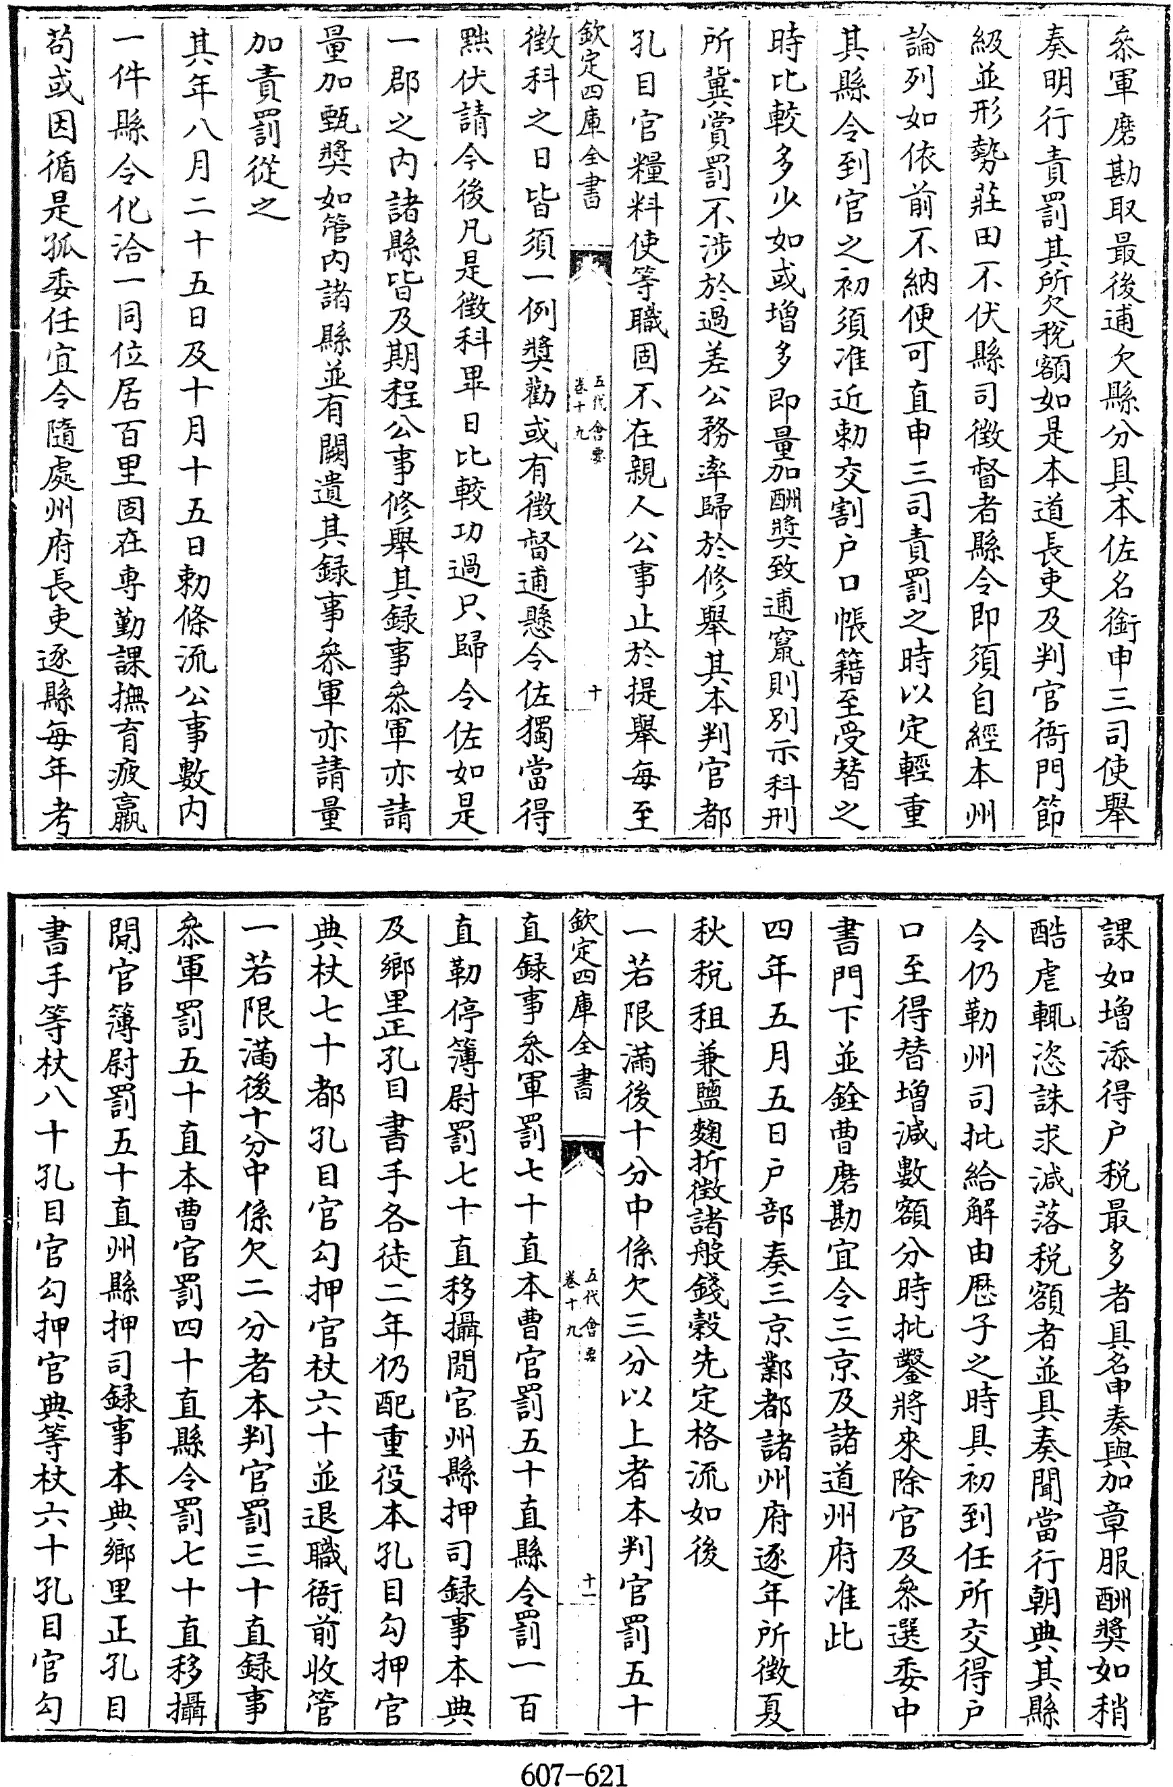 叅軍磨勘取最後逋欠縣分具本佐名銜申三司使舉
奏明行責罰其所欠稅額如是本道長吏及判官衙門節
級並形勢莊田不伏縣司徴督者縣令即須自經本州
論列如依前不納便可直申三司責罰之時以定輕重
其縣令到官之初須准近勅交割户口帳籍至受替之
時比較多少如或增多即量加酬奬致逋竄則別示科刑
所冀賞罰不涉於過差公務率歸於修舉其本判官都
孔目官糧料使等職固不在親人公事止於提舉每至
欽定四庫全書
五代會要
卷十九
十
徴科之日皆須一例奬勸或有徴督逋懸令佐獨當得
㸃伏請今後凡是徴科畢日比較功過只歸令佐如是
一郡之内諸縣皆及期程公事修舉其録事叅軍亦請
量加甄奬如管内諸縣並有闕遺其録事叅軍亦請量
加責罰從之
其年八月二十五日及十月十五日勅條流公事數内
一件縣令化洽一同位居百里固在専勤課撫育疲羸
苟或因循是孤委任宜令隨處州府長吏逐縣每年考
課如增添得户税最多者具名申奏與加章服酬奬如稍
酷虐輒恣誅求減落税額者並具奏聞當行朝典其縣
令仍勒州司批給解由歴子之時具初到任所交得户
口至得替增減數額分時批鑿將來除官及叅選委中
書門下並銓曹磨勘宜令三京及諸道州府准此
四年五月五日户部奏三京鄴都諸州府逐年所徴夏
秋稅租兼鹽麴折徴諸般錢穀先定格流如後
一若限滿後十分中係欠三分以上者本判官罰五十
欽定四庫全書
五代會要
卷十九
十一
直録事叅軍罰七十直本曹官罰五十直縣令罰一百
直勒停簿尉罰七十直移攝閒官州縣押司録事本典
及鄉里正孔目書手各徒二年仍配重役本孔目勾押官
典杖七十都孔目官勾押官杖六十並退職衙前收管
一若限滿後十分中係欠二分者本判官罰三十直録事
叅軍罰五十直本曹官罰四十直縣令罰七十直移攝
閒官簿尉罰五十直州縣押司録事本典鄉里正孔目
書手等杖八十孔目官勾押官典等杖六十孔目官勾
607-621